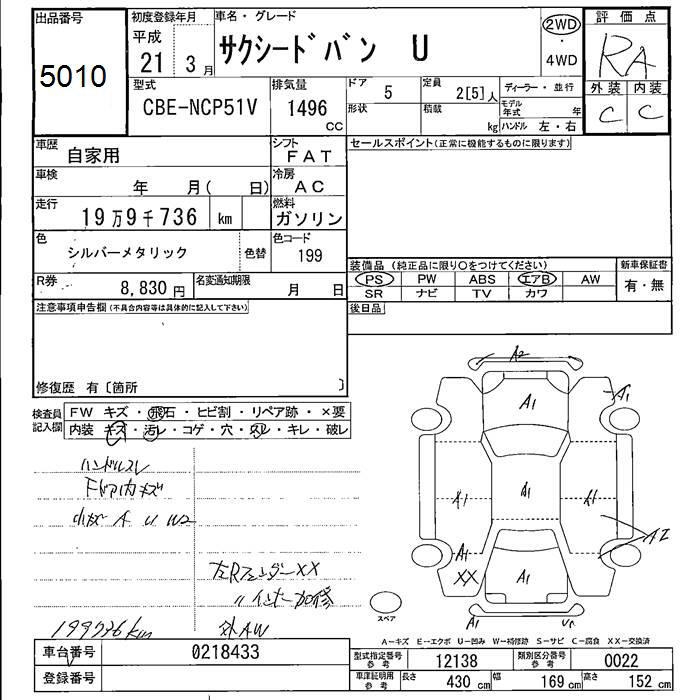 出品番号
5010
初度登録年月
平成
21 3月
車名・グレード
サクシードバン U
2WD
・
4WD
評価点
RA
外装 内装
C C
型式
CBE-NCP51V
排気量
1496
CC
ドア
5
形状
定員
2[5]人
積載
kg
ディーラー・並行
モデル年式 年
ハンドル 左・右
車歴
自家用
シフト
FAT
車検
年 月( 日)
冷房
AC
走行
19万9千736 km
燃料
ガソリン
色
シルバーメタリック
色替
色コード
199
R券
8,830円
名変通知期限
月 日
セールスポイント(正常に機能するものに限ります)
装備品 (純正品に限り○をつけてください)
新車保証書
PS PW ABS エアB AW
SR ナビ TV カワ
有・無
後日品
注意事項申告欄(不具合内容等は具体的に記入して下さい)
修復歴 有〔箇所 〕
検査員
記入欄
FW キズ・飛石・ヒビ割・リペア跡・×要
内装 キズ・汚レ・コゲ・穴・スレ・キレ・破レ
ハンドルスレ
Fドア内キズ
小キズ A U W2
左RフェンダーXX
〃インナー加修
外AW
199736km
A2
A1
A1
A1
A1
A1
A2
A1
XX
A1
A1
スペア
A-キズ E-エクボ U-凹み W-補修跡 S-サビ C-腐食 XX-交換済
車台番号
0218433
登録番号
型式指定番号
参考
12138
類別区分番号
参考
0022
車庫証明用
参考
長さ 430 cm 幅 169 cm 高さ 152 cm